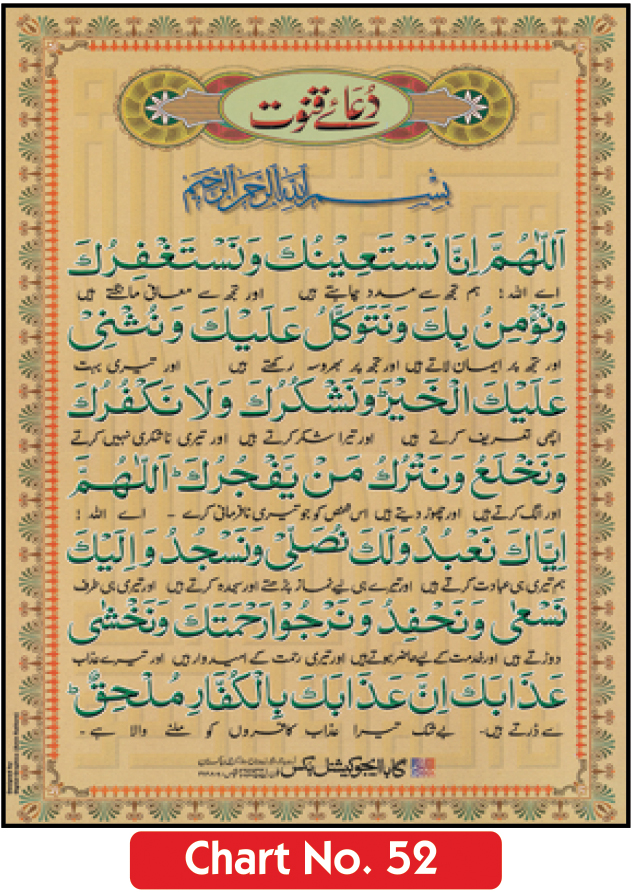 دُعائے قنوت
بِسْمِ اللهِ الرَّحْمٰنِ الرَّحِيْمِ
اَللّٰهُمَّ اِنَّا نَسْتَعِيْنُكَ وَنَسْتَغْفِرُكَ
اے اللہ! ہم تجھ سے مدد چاہتے ہیں اور تجھ سے معافی مانگتے ہیں
وَنُؤْمِنُ بِكَ وَنَتَوَكَّلُ عَلَيْكَ وَنُثْنِىْ
اور تجھ پر ایمان لاتے ہیں اور تجھ پر بھروسہ رکھتے ہیں اور تیری بہت
عَلَيْكَ الْخَيْرَؕ وَنَشْكُرُكَ وَلَا نَكْفُرُكَ
اچھی تعریف کرتے ہیں اور تیرا شکر کرتے ہیں اور تیری ناشکری نہیں کرتے
وَنَخْلَعُ وَنَتْرُكُ مَنْ يَّفْجُرُكَؕ اَللّٰهُمَّ
اور الگ کرتے ہیں اور چھوڑ دیتے ہیں اس شخص کو جو تیری نافرمانی کرے - اے اللہ!
اِيَّاكَ نَعْبُدُ وَلَكَ نُصَلِّىْ وَنَسْجُدُ وَاِلَيْكَ
ہم تیری ہی عبادت کرتے ہیں اور تیرے ہی لیے نماز پڑھتے اور سجدہ کرتے ہیں اور تیری ہی طرف
نَسْعٰى وَنَحْفِدُ وَنَرْجُوْا رَحْمَتَكَ وَنَخْشٰى
دوڑتے ہیں اور خدمت کے لیے حاضر ہوتے ہیں اور تیری رحمت کے امیدوار ہیں اور تیرے عذاب
عَذَابَكَ اِنَّ عَذَابَكَ بِالْكُفَّارِ مُلْحِقٌؕ
سے ڈرتے ہیں- بےشک تیرا عذاب کافروں کو ملنے والا ہے -
گابا ایجوکیشنل بکس
Chart No. 52